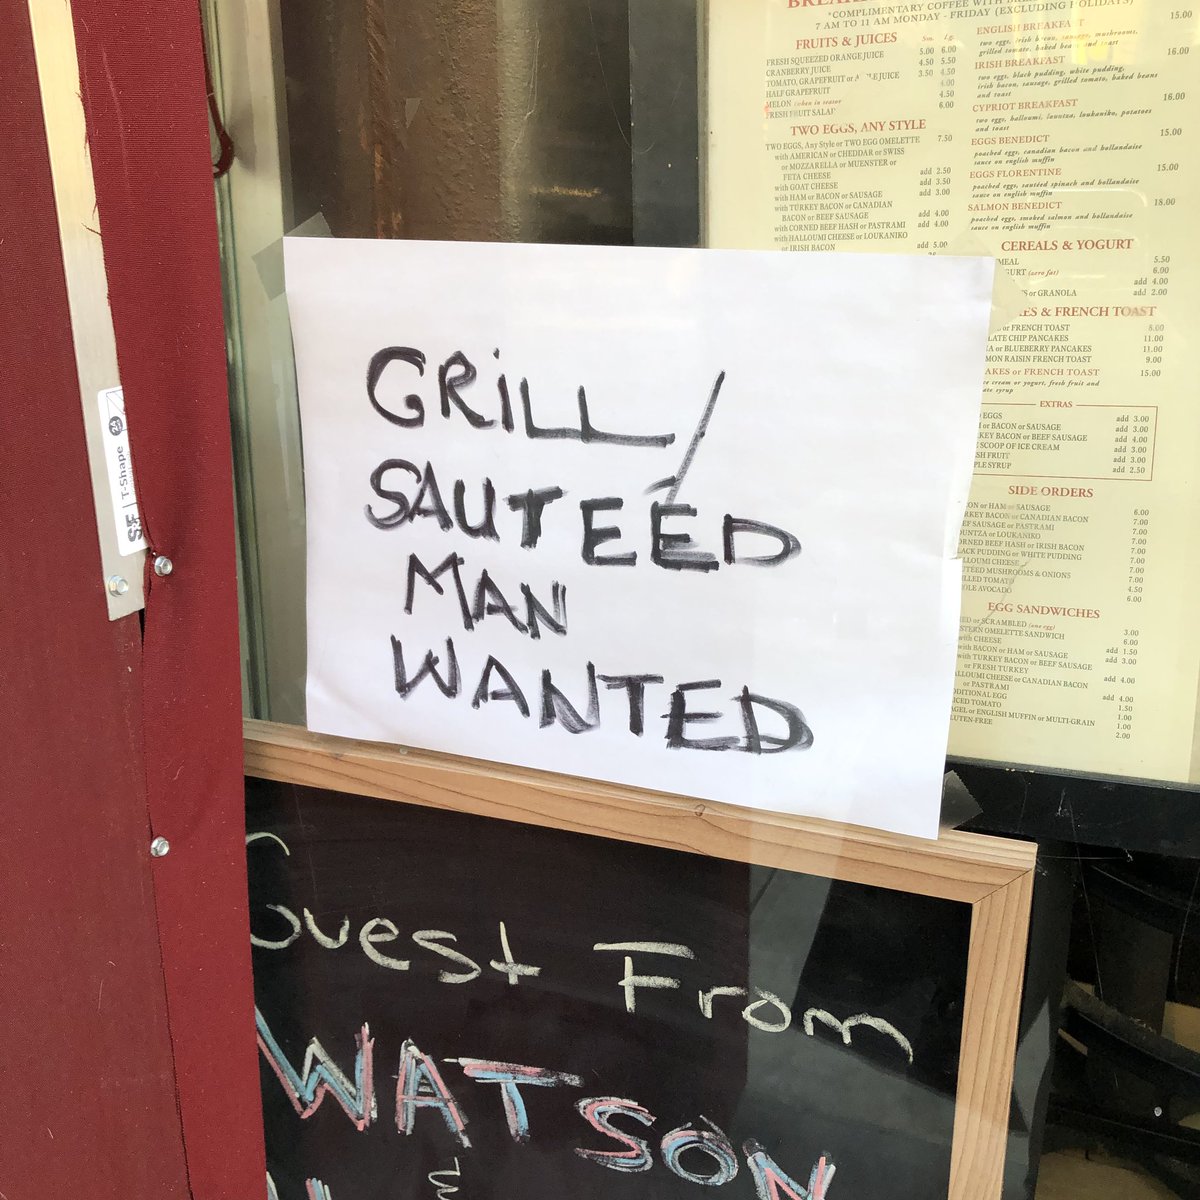 GRiLL/
SAUTEÉD
MAN
WANTED
*COMPLIMENTARY COFFEE WITH
7 AM TO 11 AM MONDAY - FRIDAY (EXCLUDING HOLIDAYS)
FRUITS & JUICES Sm. Lg.
FRESH SQUEEZED ORANGE JUICE 5.00 6.00
CRANBERRY JUICE 4.50 5.50
TOMATO, GRAPEFRUIT or JUICE 3.50 4.50
HALF GRAPEFRUIT 4.00
MELON 4.50
FRESH FRUIT SALAD 6.00
TWO EGGS, ANY STYLE
TWO EGGS, Any Style or TWO EGG OMELETTE 7.50
with AMERICAN or CHEDDAR or SWISS
or MOZZARELLA or MUENSTER or
FETA CHEESE add 2.50
with GOAT CHEESE add 3.50
with HAM or BACON or SAUSAGE add 3.00
with TURKEY BACON or CANADIAN
BACON or BEEF SAUSAGE add 4.00
with CORNED BEEF HASH or PASTRAMI add 4.00
with HALLOUMI CHEESE or LOUKANIKO
or IRISH BACON add 5.00
ENGLISH BREAKFAST 15.00
two eggs, irish bacon, sausage, mushrooms,
grilled tomato, baked beans and toast
IRISH BREAKFAST 16.00
two eggs, black pudding, white pudding,
irish bacon, sausage, grilled tomato, baked beans
and toast
CYPRIOT BREAKFAST 16.00
two eggs, halloumi, lountza, loukaniko, potatoes
and toast
EGGS BENEDICT 15.00
poached eggs, canadian bacon and hollandaise
sauce on english muffin
EGGS FLORENTINE 15.00
poached eggs, sautéed spinach and hollandaise
sauce on english muffin
SALMON BENEDICT 18.00
poached eggs, smoked salmon and hollandaise
sauce on english muffin
CEREALS & YOGURT
5.50
(zero fat) 6.00
add 4.00
or GRANOLA add 2.00
& FRENCH TOAST
or FRENCH TOAST 8.00
CHIP PANCAKES 11.00
or BLUEBERRY PANCAKES 11.00
RAISIN FRENCH TOAST 9.00
or FRENCH TOAST 15.00
ice cream or yogurt, fresh fruit and
syrup
EXTRAS
EGGS add 3.00
or BACON or SAUSAGE add 3.00
BACON or BEEF SAUSAGE add 4.00
SCOOP OF ICE CREAM add 3.00
FRUIT add 3.00
SYRUP add 2.50
SIDE ORDERS
or HAM or SAUSAGE 6.00
BACON or CANADIAN BACON 7.00
SAUSAGE or PASTRAMI 7.00
or LOUKANIKO 7.00
BEEF HASH or IRISH BACON 7.00
PUDDING or WHITE PUDDING 7.00
CHEESE 7.00
MUSHROOMS & ONIONS 7.00
TOMATO 4.50
AVOCADO 6.00
EGG SANDWICHES
or SCRAMBLED (one egg) 3.00
OMELETTE SANDWICH 6.00
with CHEESE add 1.50
with BACON or HAM or SAUSAGE add 3.00
with TURKEY BACON or BEEF SAUSAGE
or FRESH TURKEY add 4.00
CHEESE or CANADIAN BACON
or PASTRAMI add 4.00
EGG 1.50
TOMATO 1.00
or ENGLISH MUFFIN or MULTI-GRAIN 1.00
GLUTEN-FREE 2.00
T-Shape
Guest From
WATSON
&